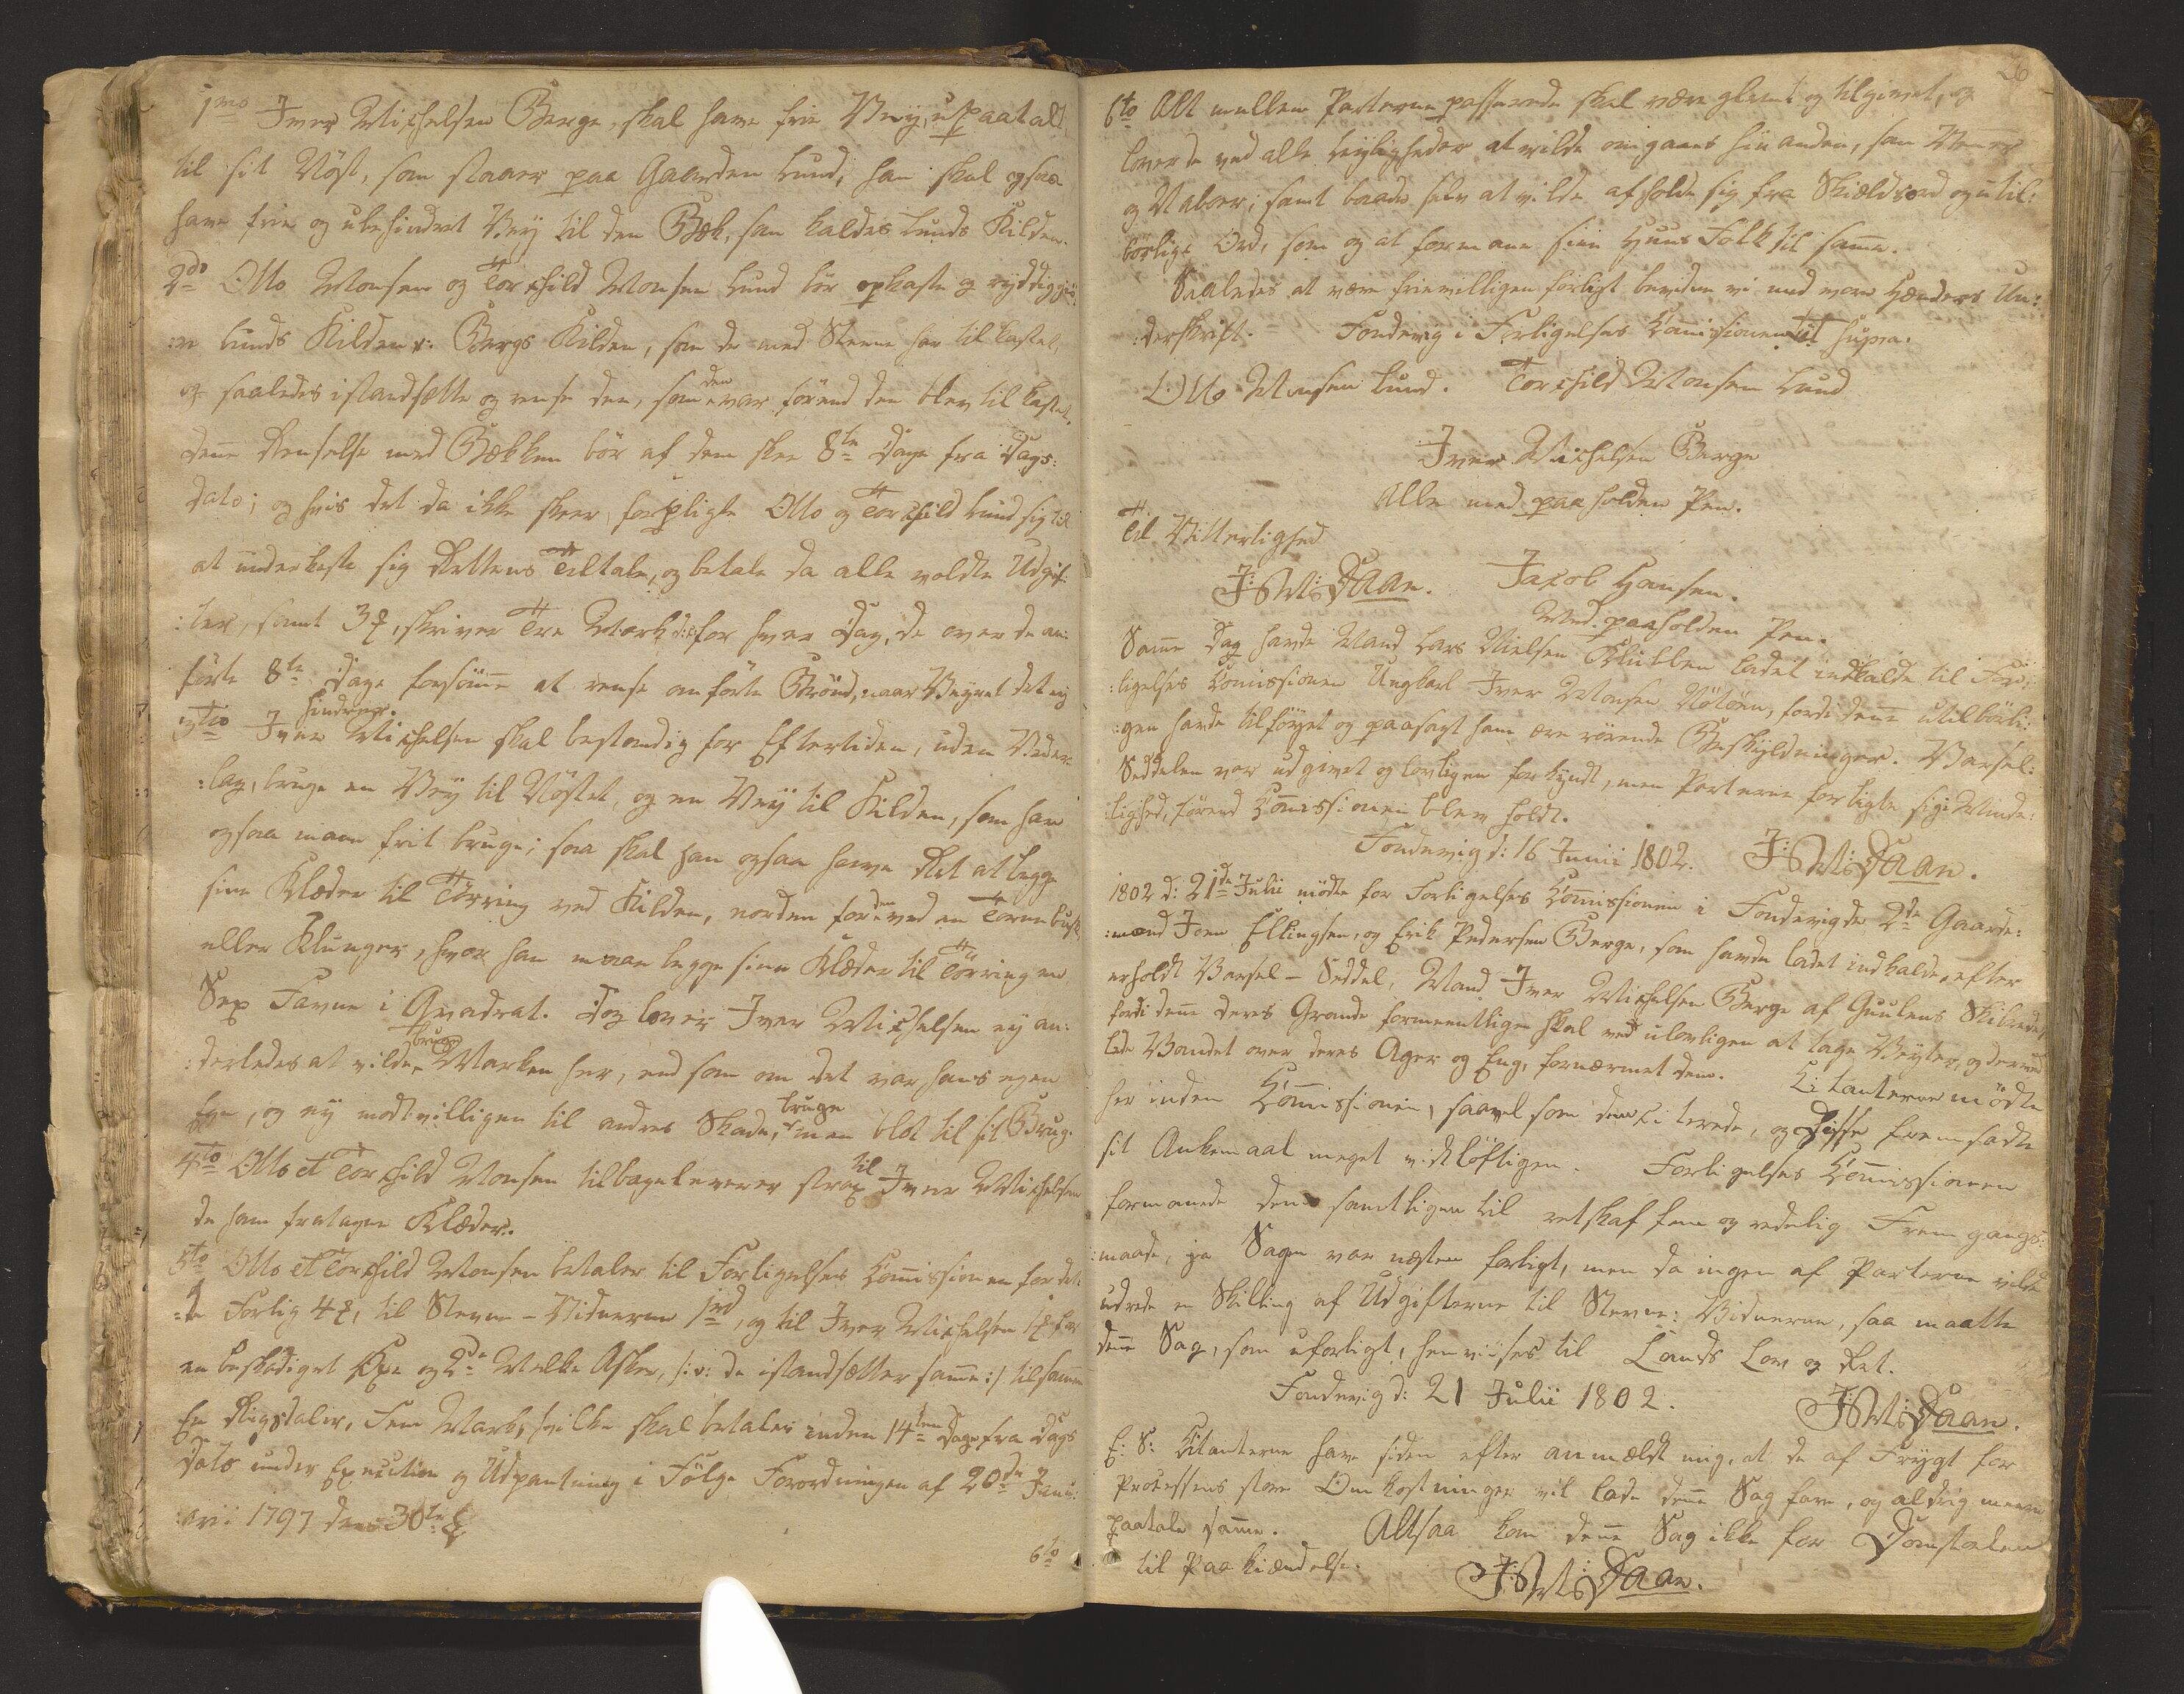 1mo Iver Michelsen Berge, skal have frie Vey, upaatalt,
til sit Nöst, som staaer paa Gaarden Lund; han skal ogsaa
have frie og ubehindret Vey til den Bæk, som kaldes Lunds Kilden.
2do Otto Monsen og Torchild Monsen Lund bör opkaste og ryddiggiö:
:re Lunds Kilden &: Bergs Kilden, som de med Steene har tilkastet,
og saaledes istandsætte og rense den, som den var förend den blev tilkastet.
Denne Renselse med Bækken bör af dem skee 8te Dage fra Dags:
dato; og hvis det da ikke skeer, forpligte Otto og Torchild Lund sig til
at underkaste sig Rettens Tiltale, og betale da alle voldte Udgif:
:ter, samt 3 , skriver Tre Mark d: for hver Dag, de over de an:
förte 8te Dage forsömme at rense anförte Brönd, naar Veyret det ey
hindrer.
3tio Iver Michelsen skal bestandig for Eftertiden, uden Veder:
:lag, bruge en Vey til Nöstet, og en Vey til Kilden, som han
ogsaa maae frit bruge; saa skal han ogsaa have Ret at legge
sine Klæder til Törring ved Kilden, norden for den ved en Tornebusk,
eller Klunger, hvor han maae legge sine Klæder til Törring en
Sex Favne i Qvadrat. Dog lover Iver Michelsen ey an:
:derledes at vilde bruge Marken her, end som om det var hans egen
Eye, og ey modtvilligen til andres Skade bruge, men blot til sit Brug.
4to Otto et Torchild Monsen tilbageleverer strax til Iver Michelsen
de ham fratagne Klæder.
5to Otto et Torchild Monsen betaler til Forligelses Commissionen for det:
:te Forlig 4 , til Stevne-Vidnerne 1 rd, og til Iver Michelsen 1 for
en beskadiget Øxe og 2de Melke Asker, /:o: de istandsætter samme:/ tilsamm
En Rigsdaler, Fem Mark, hvilke skal betales inden 14ten Dage fra Dags
Dato under Execution og Udpantning i Fölge Forordningen af 20de Janu:
:arii 1797 dens 36te §
6to

26
6to Alt mellem Parterne passerede skal være glemt og tilgivet, og
lovede ved alle Leyligheder at vilde omgaaes hinanden, som Venner
og Naboer; samt baade selv at vilde afholde sig fra Skieldsord og util:
börlige Ord, som og at formane sine Huus Folk til samme.
Saaledes at være frievilligen forligt bevidne vi med vore Hænders Un:
:derskrift. Fondevig i Forligelses Commissionen ut supra.
Otto Monsen Lund. Torchild Monsen Lund
Iver Michelsen Berge
Alle med paaholden Pen.
Til Vitterlighed
J: M: Daae. Jacob Hansen.
Med paaholden Pen.
Samme Dag havde Mand Lars Nielsen Klubben ladet indkalde til For:
:ligelses Commissionen Ungkarl Iver Monsen Nötöen, fordi denne utilbörli:
:gen havde tilföyet og paasagt ham ære rörende Beskyldninger. Varsel:
Seddelen var udgivet og lovligen forkyndt, men Parterne forligte sig i Minde:
:lighed, förend Commissionen blev holdt.
Fondevig d: 16 Junii 1802. J: M: Daae.
1802 d: 21de Julii mödte for Forligelses Commissionen i Fondevig de 2de Gaard:
:mænd Joen Ellingsen, og Erik Pedersen Berge, som havde ladet indkalde, efter
erholdt Varsel-Seddel, Mand Iver Michelsen Berge af Guulens Skibrede,
fordi denne deres Grande formeentligen skal ved ulovligen at tage Veyter, og derved
lede Vandet over deres Ager og Eng, fornærmet dem. Citanterne mödte
her inden Commissionen, saavel som den Citerede, og Disse fremsadte
sit Ankemaal meget vidtlöftigen. Forligelses Commissionen
formanede dem samtligen til retskaffen og redelig Fremgangs:
:maade, ja Sagen var næsten forligt, men da ingen af Parterne vilde
udrede en Skilling af Udgifterne til Stevne: Vidnerne, saa maatte
denne Sag, som uforligt, henviises til Lands Lov og Ret.
Fondevig d: 21 Julii 1802. J: M: Daae.
E: S: Citanterne have siden efter anmældt mig, at de af Frygt for
Processens store Omkostninger vil lade denne Sag fare, og aldrig meere
paatale samme. Altsaa kom denne Sag ikke for Domstolen
til Paakiændelse. J: M: Daae.